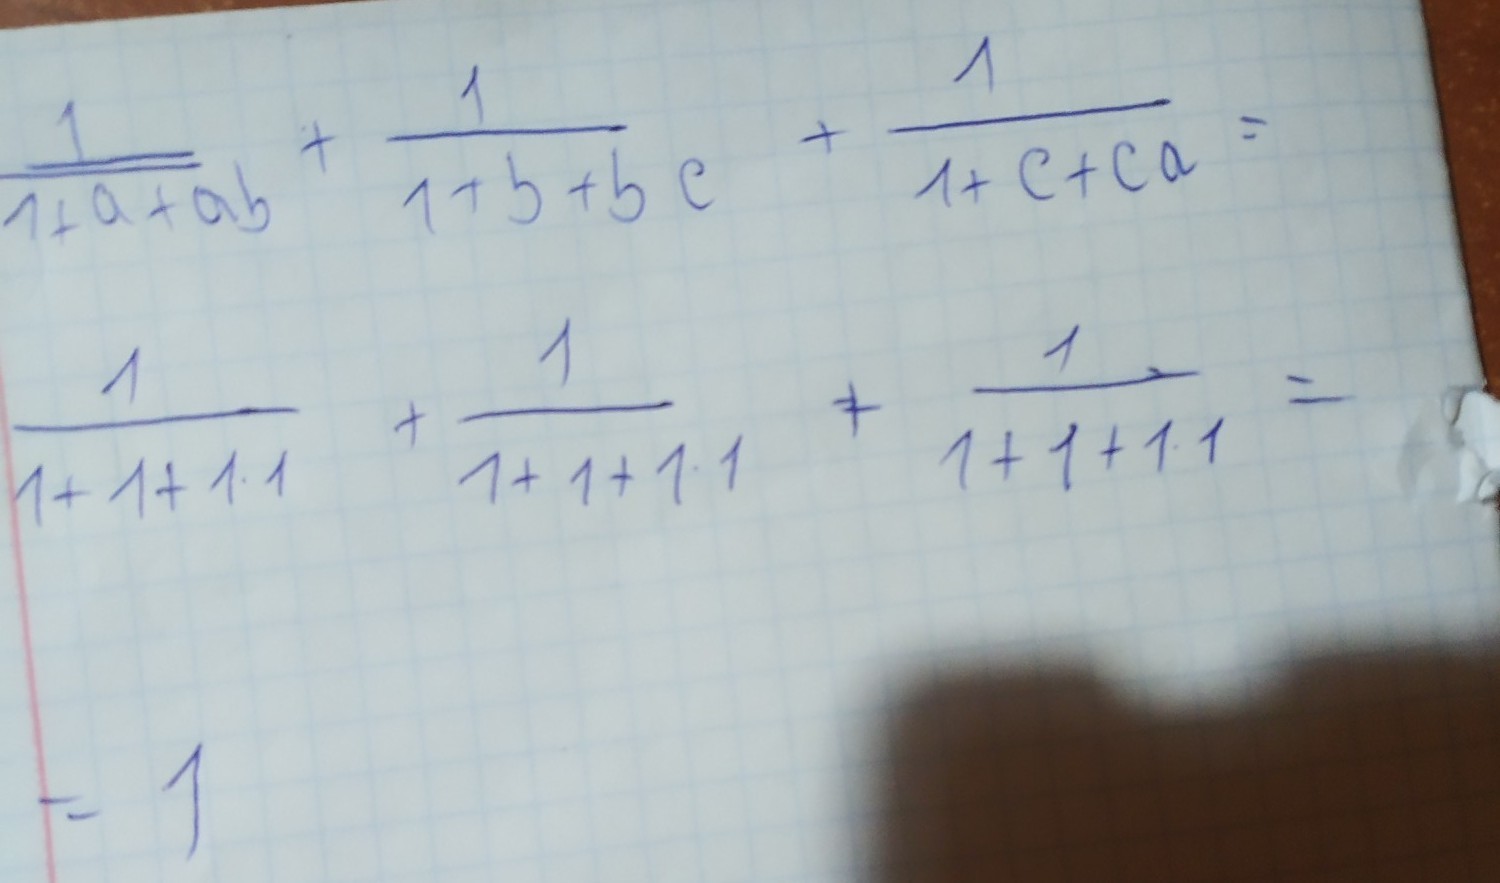 1/(1+a+ab) + 1/(1+b+bc) + 1/(1+c+ca) =
1/(1+1+1·1) + 1/(1+1+1·1) + 1/(1+1+1·1) =
= 1